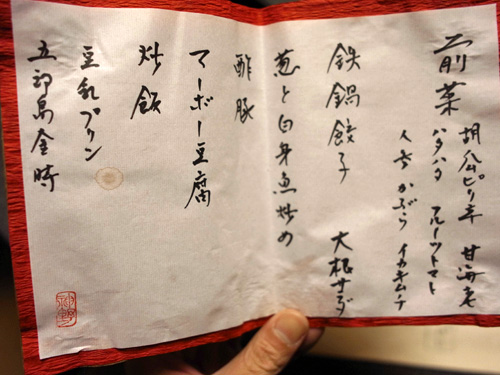 前菜
胡瓜ピリ辛 甘海老
ハタハタ フルーツトマト
人参 かぶら イカキムチ
大根サラダ
鉄鍋餃子
葱と白身魚炒め
酢豚
マーボー豆腐
炒飯
豆乳プリン
五郎島金時